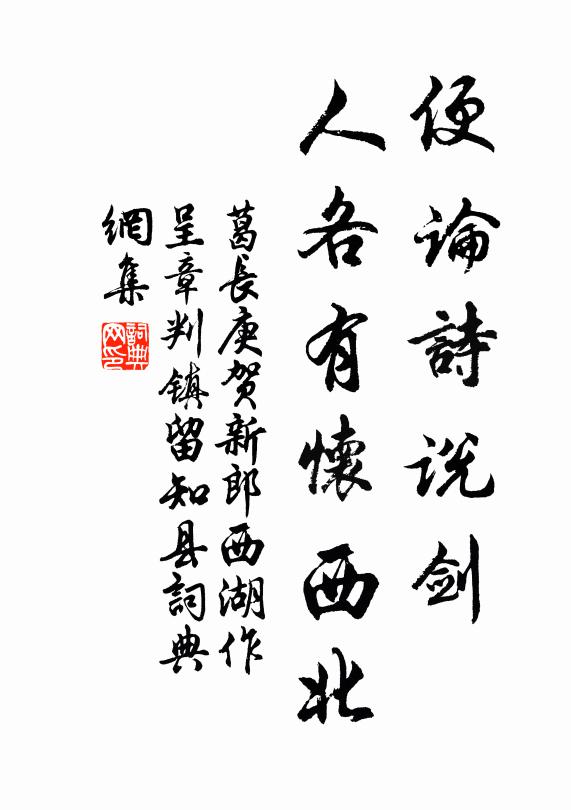 便論詩说剑
人各有懷西北
葛長庚贺新郎西湖作
呈章判镇留知县詞典
網集
詞典网印